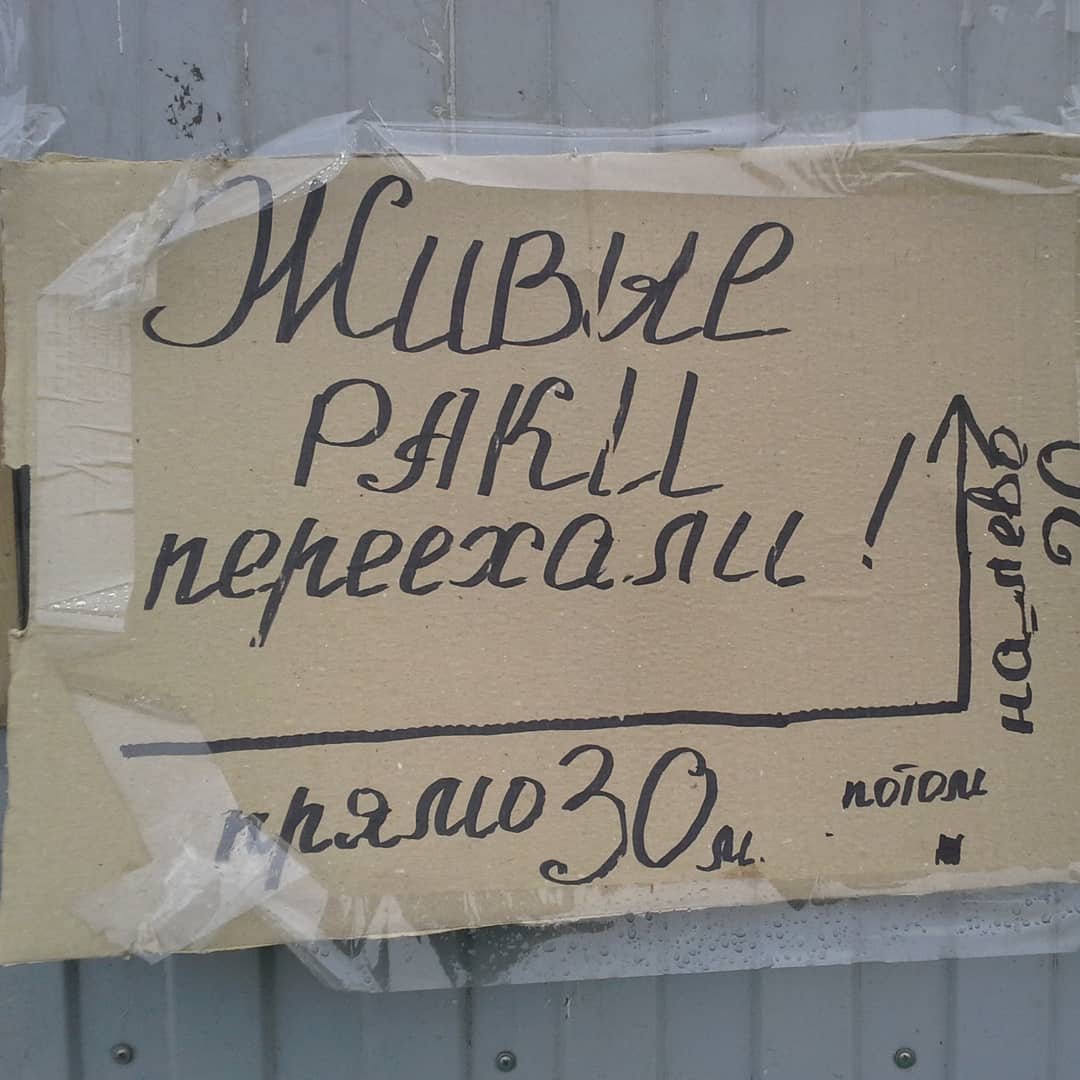 Живые
РАКИ
переехали!
прямо 30 м.
потом
на_лево
20